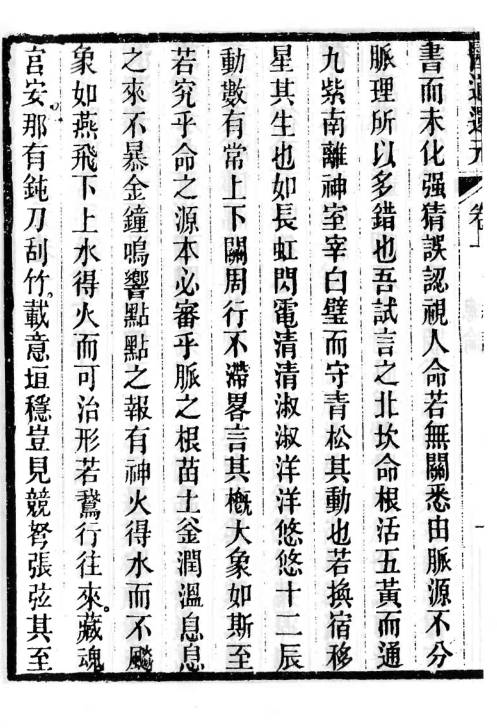 醫道還元 卷一
書而未化强猜誤認視人命若無關悉由脈源不分
脈理所以多錯也吾試言之北坎命根活五黃而通
九紫南離神室宰白璧而守青松其動也若換宿移
星其生也如長虹閃電清清淑淑洋洋悠悠十二辰
動數有常上下關周行不滯畧言其概大象如斯至
若究乎命之源本必審乎脈之根苗土釜潤溫息息
之來不暴金鐘鳴響點點之報有神火得水而不飈
象如燕飛下上水得火而可治形若鵞行往來。藏魂
宮安。那有鈍刀刮竹。載意垣穩豈見競弩張弦其至